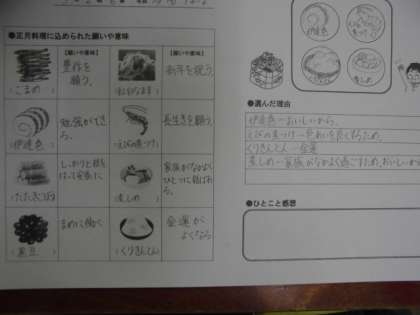 ●正月料理に込められた願いや意味
【願いや意味】
【願いや意味】
豊作を
願う。
(ごまめ)
新年を祝う。
(紅白なます)
勉強ができ
る。
(伊達巻)
長生きを願う。
(えびの煮つけ)
しっかりと根を
はって
(たたきごぼう)
家族がなかよく
ひとつに結ばれ
る。
(煮しめ)
まめに働く
(黒豆)
金運が
よくなる
(くりきんとん)
伊達巻
煮しめ
●選んだ理由
伊達巻→おいしいから。
えびの煮つけ→色あいを良くするため。
くりきんとん→金運
煮しめ→家族がなかよく過ごすため、おいしいから
●ひとこと感想